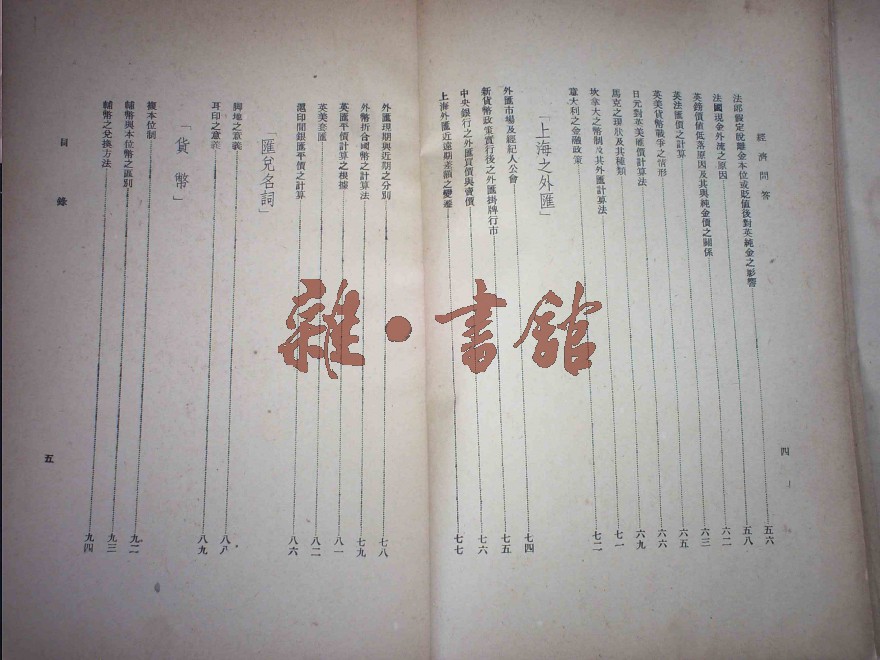 經濟問答
四
法郎假定脫離金本位或貶值後對英純金之影響……五六
法國現金外流之原因……五八
英鎊價值低落原因及其與純金價之關係……六二
英法匯價之計算……六三
英美貨幣戰爭之情形……六五
日元對英美匯價計算法……六六
馬克之現狀及其種類……六九
坎拿大之幣制及其外匯計算法……七一
意大利之金融政策……七二
「上海之外匯」
外匯市場及經紀人公會……七四
新貨幣政策實行後之外匯掛牌行市……七五
中央銀行之外匯買價與賣價……七六
上海外匯近遠期差額之變遷……七七
外匯現期與近期之分別……七八
外幣折合國幣之計算法……七九
英匯平價計算之根據……八一
英美套匯……八二
滬印間銀匯平價之計算……八六
「匯兌名詞」
脚地之意義……八八
耳印之意義……八九
「貨幣」
複本位制……九二
輔幣與本位幣之區別……九三
輔幣之兌換方法……九四
目錄
五
雜•書館